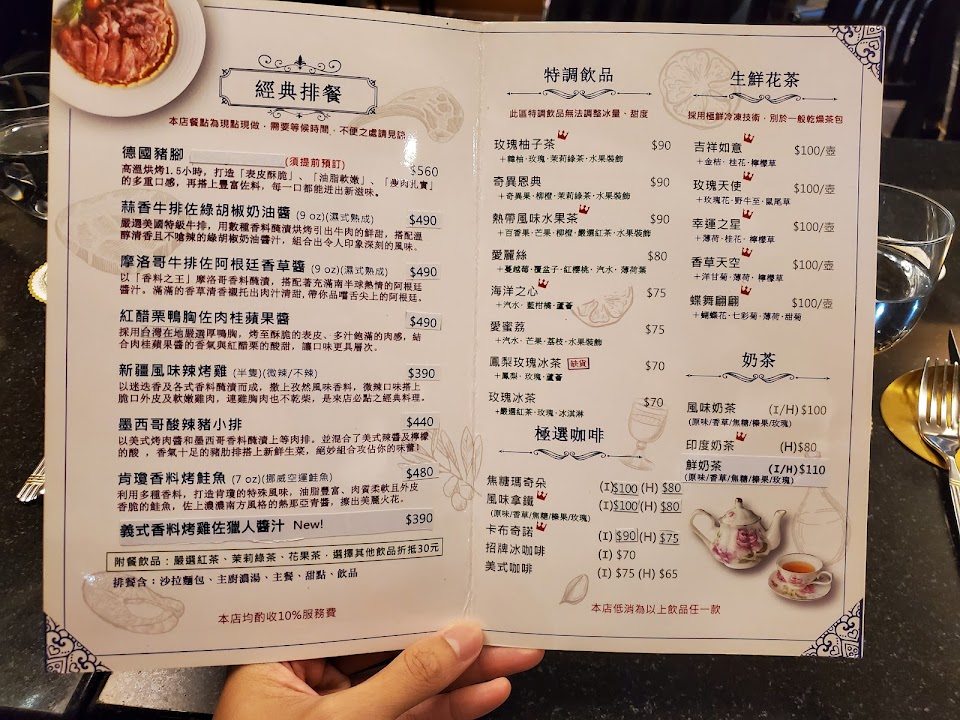 經典排餐
本店餐點為現點現做，需要等候時間，不便之處請見諒
德國豬腳 (須提前預訂) $560
高溫烘烤1.5小時，打造「表皮酥脆」、「油脂軟嫩」、「瘦肉扎實」
的多重口感，再搭上豐富佐料，每一口都能迸出新滋味。
蒜香牛排佐綠胡椒奶油醬 (9 oz)(濕式熟成) $490
嚴選美國特級牛排，用數種香料醃漬烘烤引出牛肉的鮮甜，搭配溫
醇清香且不嗆辣的綠胡椒奶油醬汁，組合出令人印象深刻的風味。
摩洛哥牛排佐阿根廷香草醬 (9 oz)(濕式熟成) $490
以「香料之王」摩洛哥香料醃漬，搭配著充滿南半球熱情的阿根廷
醬汁。滿滿的香草清香襯托出肉汁清甜，帶你品嚐舌尖上的阿根廷。
紅醋栗鴨胸佐肉桂蘋果醬 $490
採用台灣在地嚴選厚鴨胸，烤至酥脆的表皮、多汁飽滿的肉感，結
合肉桂蘋果醬的香氣與紅醋栗的酸甜，讓口味更具層次。
新疆風味辣烤雞 (半隻)(微辣/不辣) $390
以迷迭香及各式香料醃漬而成，撒上孜然風味香料，微辣口味搭上
脆口外皮及軟嫩雞肉，連雞胸肉也不乾柴，是來店必點之經典料理。
墨西哥酸辣豬小排 $440
以美式烤肉醬和墨西哥香料醃漬上等肉排。並混合了美式辣醬及檸檬
的酸，香氣十足的豬肋排搭上新鮮生菜，絕妙組合攻佔你的味蕾!
肯瓊香料烤鮭魚 (7 oz)(挪威空運鮭魚) $480
利用多種香料，打造肯瓊的特殊風味，油脂豐富、肉質柔軟且外皮
香脆的鮭魚，佐上濃濃南方風格的熱那亞青醬，擦出美麗火花。
義式香料烤雞佐獵人醬汁 New! $390
附餐飲品：嚴選紅茶、茉莉綠茶、花果茶．選擇其他飲品折抵30元
排餐含：沙拉麵包、主廚濃湯、主餐、甜點、飲品
本店均酌收10%服務費
特調飲品
此區特調飲品無法調整冰量、甜度
玫瑰柚子茶 $90
＋韓柚·玫瑰·茉莉綠茶·水果裝飾
奇異恩典 $90
＋奇異果·柳橙·茉莉綠茶·水果裝飾
熱帶風味水果茶 $90
＋百香果·芒果·柳橙·嚴選紅茶·水果裝飾
愛麗絲 $80
＋蔓越莓·覆盆子·紅櫻桃·汽水·薄荷葉
海洋之心 $75
＋汽水·藍柑橘·蘆薈
愛蜜荔 $75
＋汽水·芒果·荔枝·水果裝飾
鳳梨玫瑰冰茶 缺貨 $70
＋鳳梨·玫瑰·蘆薈
玫瑰冰茶 $70
＋嚴選紅茶·玫瑰·冰淇淋
極選咖啡
焦糖瑪奇朵 (I)$100 (H) $80
風味拿鐵 (I)$100 (H) $80
(原味/香草/焦糖/榛果/玫瑰)
卡布奇諾 (I) $90 (H) $75
招牌冰咖啡 (I) $70
美式咖啡 (I) $75 (H) $65
生鮮花茶
採用極鮮冷凍技術，別於一般乾燥茶包
吉祥如意 $100/壺
＋金桔·桂花·檸檬草
玫瑰天使 $100/壺
＋玫瑰花·野牛至·鼠尾草
幸運之星 $100/壺
＋薄荷·桂花·檸檬草
香草天空 $100/壺
＋洋甘菊·薄荷·檸檬草
蝶舞翩翩 $100/壺
＋蝴蝶花·七彩菊·薄荷·甜菊
奶茶
風味奶茶 (I/H) $100
(原味/香草/焦糖/榛果/玫瑰)
印度奶茶 (H)$80
鮮奶茶 (I/H)$110
(原味/香草/焦糖/榛果/玫瑰)
本店低消為以上飲品任一款